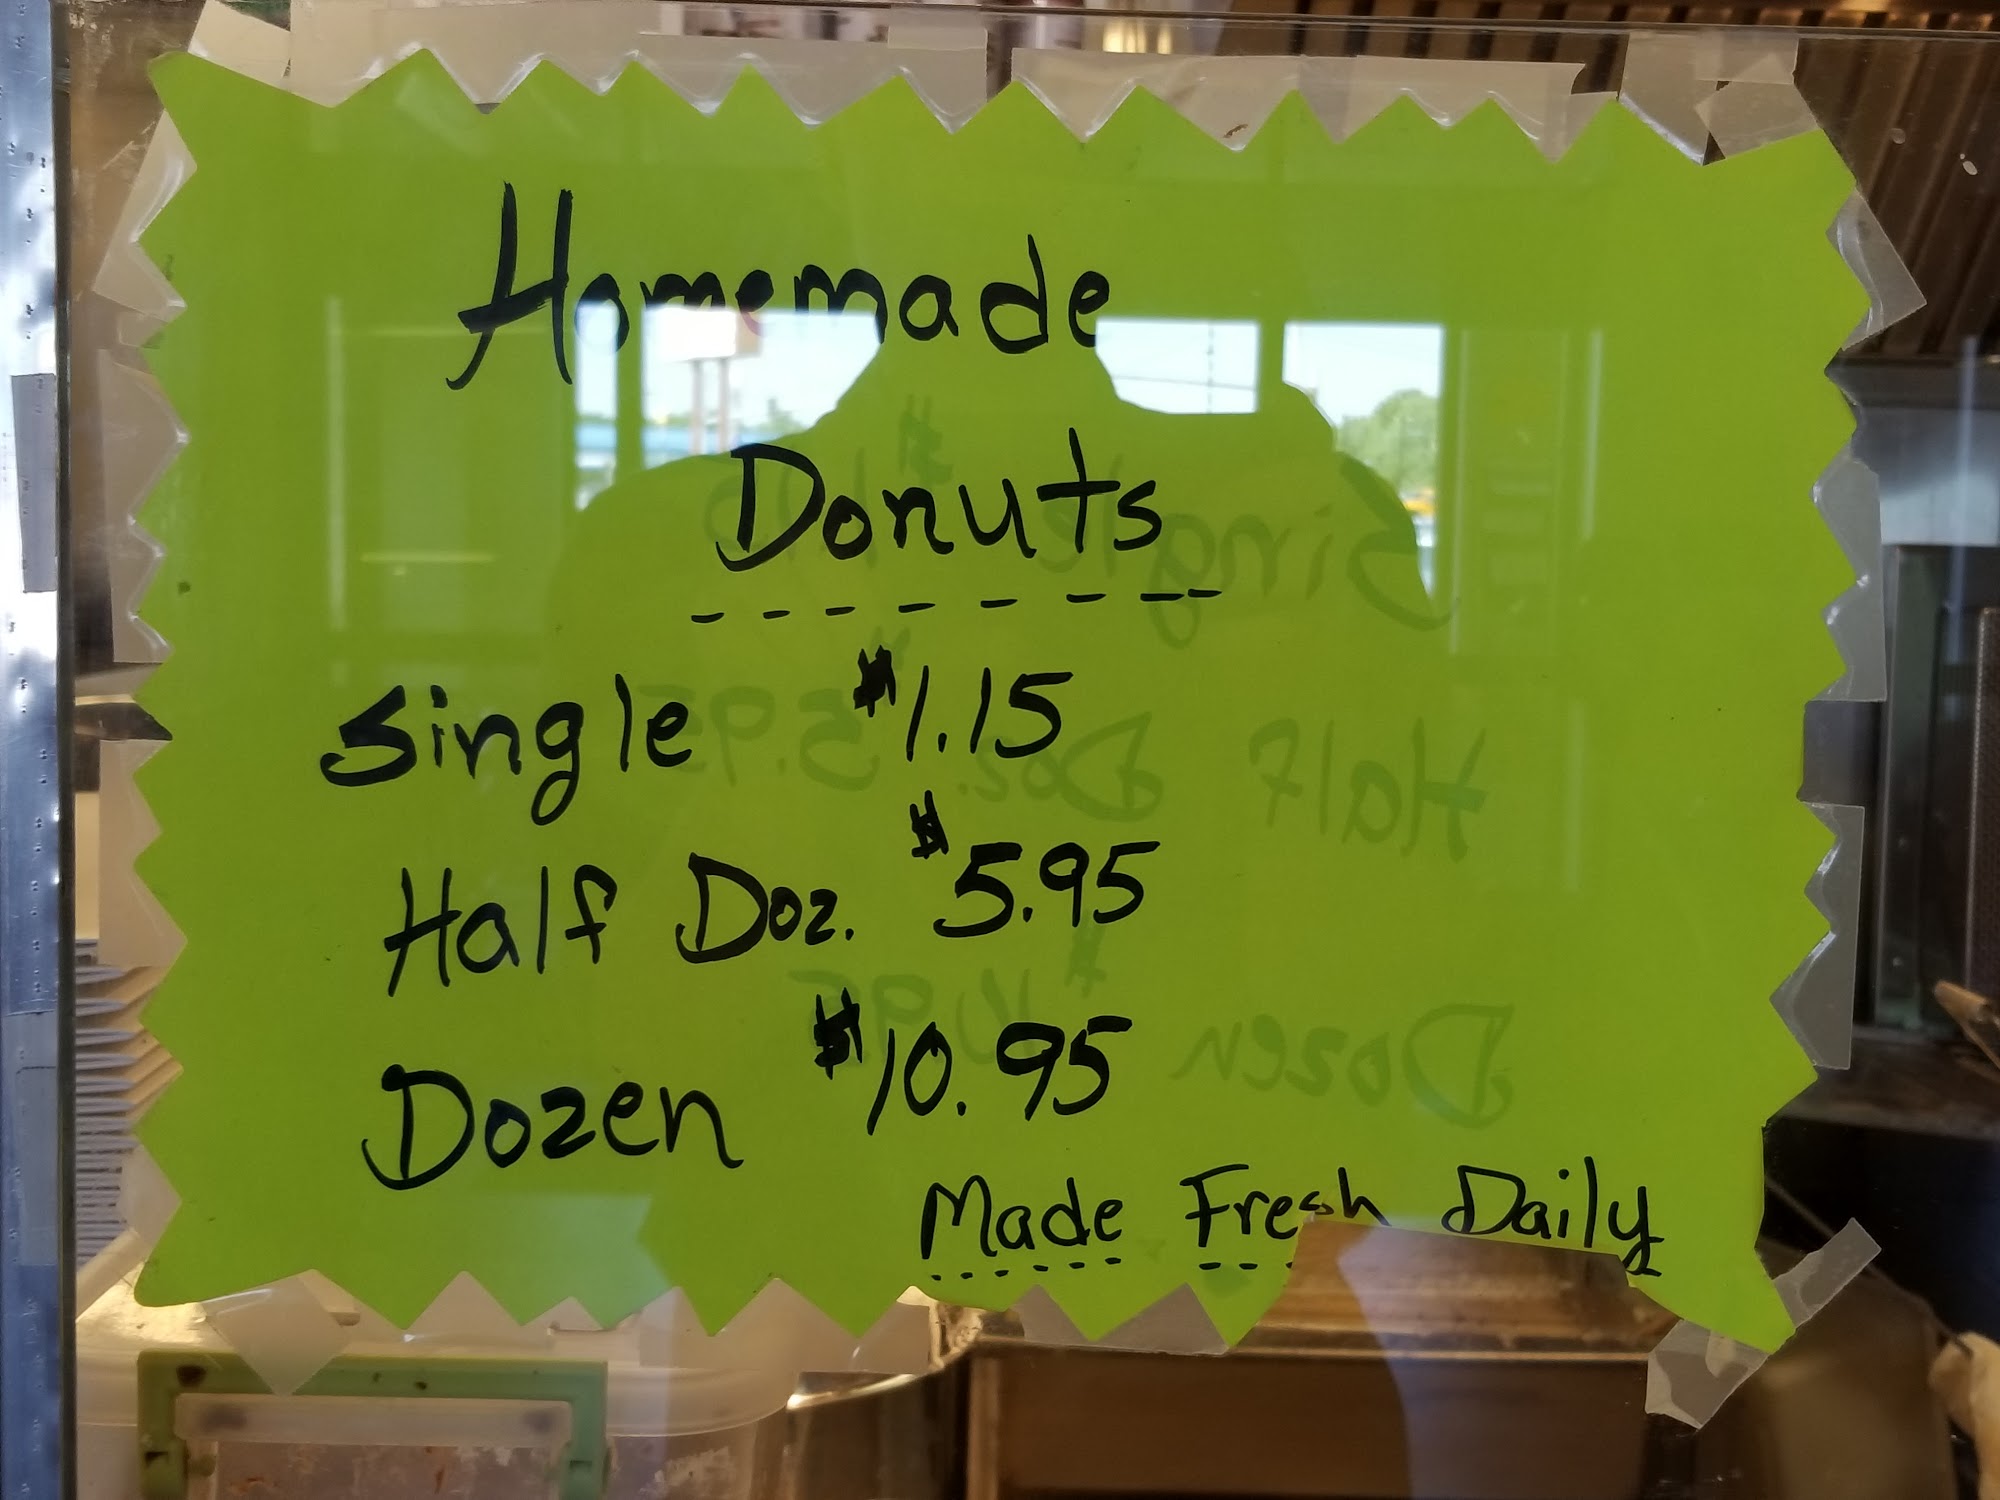 Homemade
Donuts
Single $1.15
Half Doz. $5.95
Dozen $10.95
Made Fresh Daily